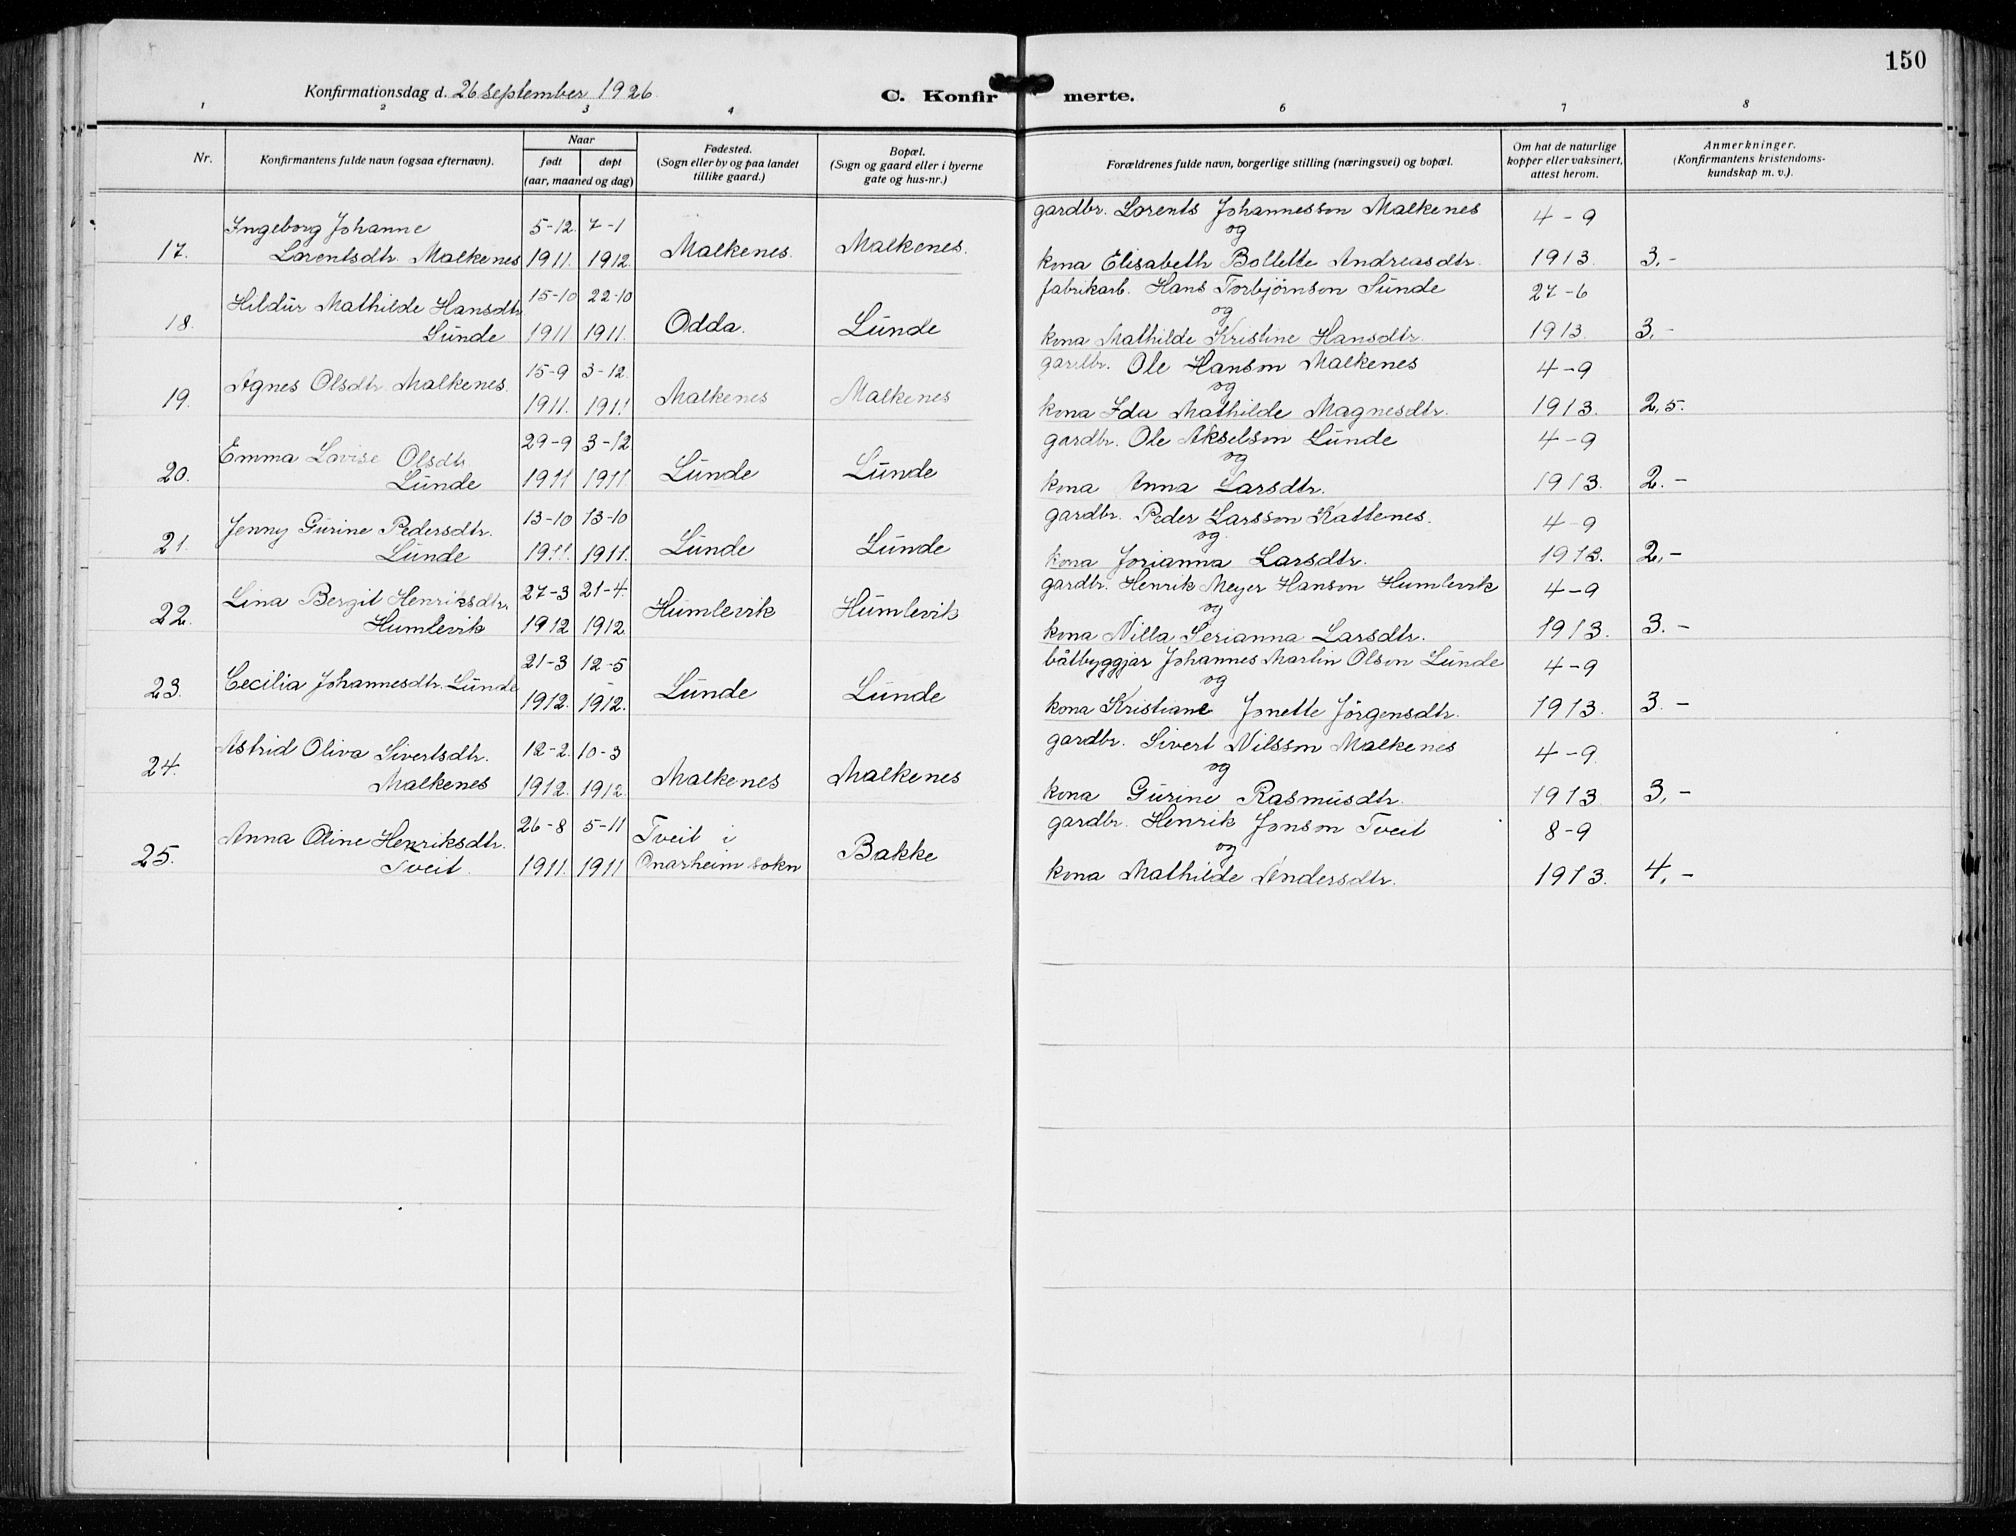 150
Konfirmationsdag d. 26 september 1926
C. Konfirmerte.
1 2 3 4 6 7 8
Nr.
Konfirmantens fulde navn (ogsaa efternavn).
Naar
født døpt
(aar, maaned og dag)
Fødested.
(Sogn eller by og paa landet
tillike gaard.)
Bopæl.
(Sogn og gaard eller i byerne
gate og hus-nr.)
Forældrenes fulde navn, borgerlige stilling (næringsvei) og bopæl.
Om hat de naturlige
kopper eller vaksinert,
attest herom.
Anmerkninger.
(Konfirmantens kristendoms-
kundskap m. v.).
Ingeborg Johanne 5-12 7-1 gardbr. Lorents Johannesson Malkenes 4-9
og
17. Lorentsdtr. Malkenes 1911. 1912. Malkenes. Malkenes. kona Elisabeth Bollette Andreasdtr. 1913. 3.-
Hildur Mathilde Hansdtr 15-10 22-10 fabrikarb. Hans Torbjørnson Sunde 27-6
og
18. Sunde 1911 1911. Odda. Lunde kona Mathilde Kristine Hansdtr. 1913. 3.-
Agnes Olsdtr. Malkenes. 15-9 3-12. gardbr. Ole Hanson Malkenes 4-9
og
19. 1911. 1911 Malkenes Malkenes kona Ida Mathilde Magnesdtr. 1913. 2,5.
Emma Lovise Olsdtr 29-9 3-12 gardbr. Ole Akselson Lunde 4-9
og
20. Lunde 1911 1911 Lunde Lunde kona Anna Larsdtr. 1913. 2.-
Jenny Gurine Pedersdtr. 13-10 13-10 gardbr. Peder Larsson Kattenes. 4-9
og
21. Lunde 1911. 1911. Lunde Lunde kona Jorianna Larsdtr. 1913. 2,-
Lina Bergit Henriksdtr. 27-3 21-4 gardbr. Henrik Meyer Hanson Humlevik 4-9
og
22. Humlevik 1912 1912. Humlevik Humlevik kona Nilla Serianna Larsdtr. 1913. 3.-
Cecilia Johannesdtr. Lunde 21-3 12-5 båtbyggjar Johannes Martin Olson Lunde 4-9
og
23. 1912. 1912. Lunde Lunde kona Kristiane Jonette Jörgensdtr. 1913. 3.-
Astrid Oliva Sivertsdtr. 12-2. 10-3 gardbr. Sivert Nilsson Malkenes 4-9.
og
24. Malkenes 1912. 1912. Malkenes Malkenes kona Gurine Rasmusdtr. 1913 3,-
Anna Oline Henriksdtr. 26-8 5-11 Tveit i gardbr. Henrik Jonson Tveit 8-9
og
25. Tveit. 1911. 1911 Onarheim sokn Bakke kona Mathilde Andersdtr. 1913. 4,-